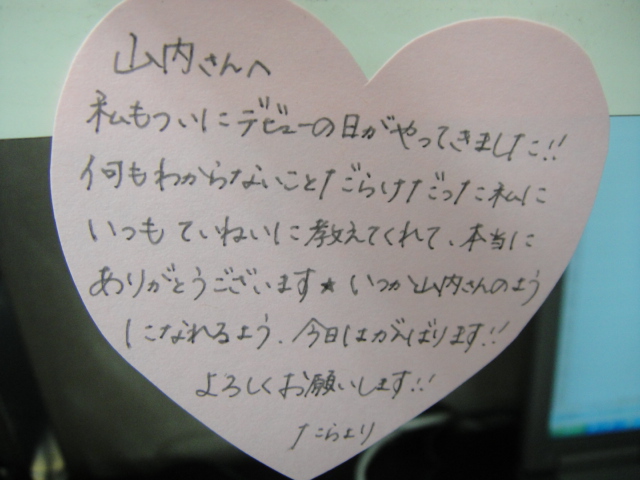 山内さんへ
私もついにデビューの日がやってきました!!
何もわからないことだらけだった私に
いつもていねいに教えてくれて、本当に
ありがとうございます★いつか山内さんのよう
になれるよう、今日はがんばります!!
よろしくお願いします!!
たらより